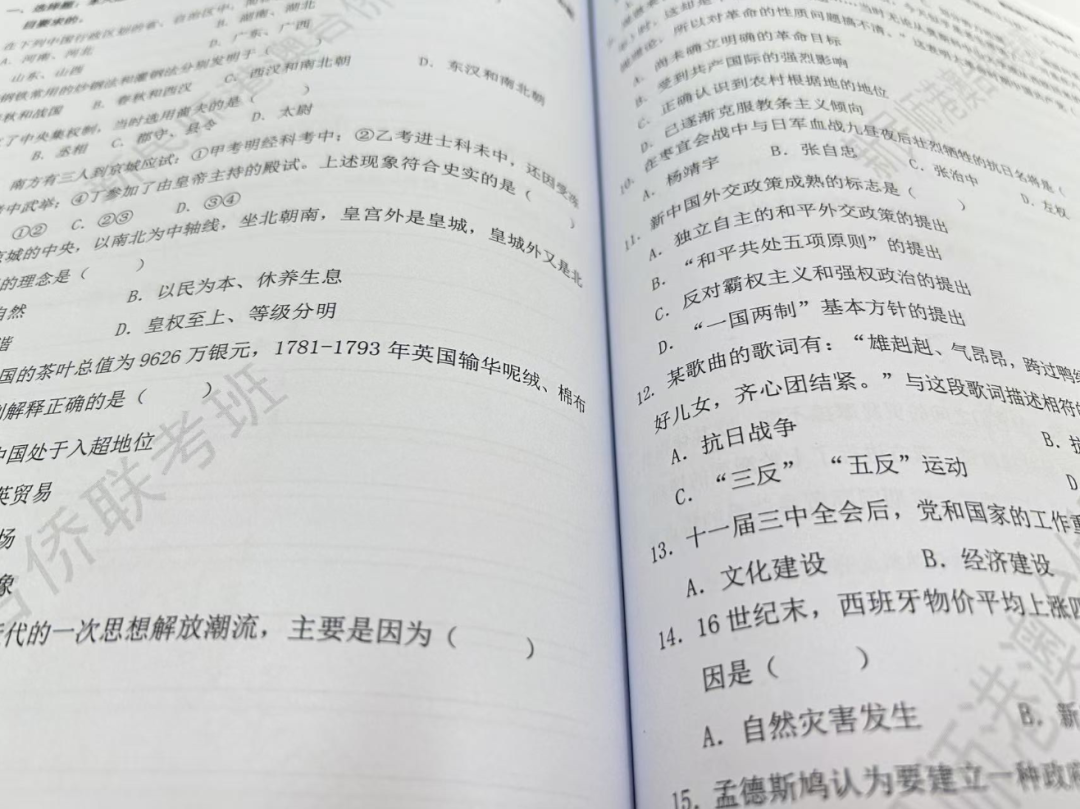 一、选择题：
目要求的。
A. 河南、河北
B. 湖南、湖北
山东、山西
D. 广东、广西
钢铁常用的炒钢法和灌钢法分别发明于（
秋和战国 B. 春秋和西汉 C. 西汉和南北朝 D. 东汉和南北朝
了中央集权制，当时选用董夫的是（ ）
B. 丞相 C. 郡守、县令 D. 太尉
南方有三人到京城应试：①甲考明经科考中；②乙考进士科未中，还因
中武举；④丁参加了由皇帝主持的殿试。上述现象符合史实的是（ ）
①② C. ②③ D. ③④
京城的中央，以南北为中轴线，坐北朝南，皇宫外是皇城，皇城外又是北
的理念是（ ）
自然 B. 以民为本、休养生息
谐 D. 皇权至上、等级分明
国的茶叶总值为 9626 万银元，1781-1793 年英国输华呢绒、棉布
解释正确的是（ ）
中国处于入超地位
英贸易
场
象
代的一次思想解放潮流，主要是因为（ ）
所以对革命的性质问题搞不清。”
A. 尚未确立明确的革命目标
B. 受到共产国际的强烈影响
C. 正确认识到农村根据地的地位
D. 已逐渐克服教条主义倾向
10. 在枣宜会战中与日军血战九昼夜后壮烈牺牲的抗日名将是（
A. 杨靖宇 B. 张自忠 C. 张治中 D. 左权
11. 新中国外交政策成熟的标志是（ ）
A. 独立自主的和平外交政策的提出
B. “和平共处五项原则”的提出
C. 反对霸权主义和强权政治的提出
D. “一国两制”基本方针的提出
12. 某歌曲的歌词有：“雄赳赳、气昂昂，跨过鸭绿
好儿女，齐心团结紧。”与这段歌词描述相符的
A. 抗日战争 B. 抗
C. “三反”“五反”运动 D
13. 十一届三中全会后，党和国家的工作重
A. 文化建设 B. 经济建设
14. 16 世纪末，西班牙物价平均上涨四
因是（ ）
A. 自然灾害发生 B. 新
15. 孟德斯鸠认为要建立一种政府
侨联考班